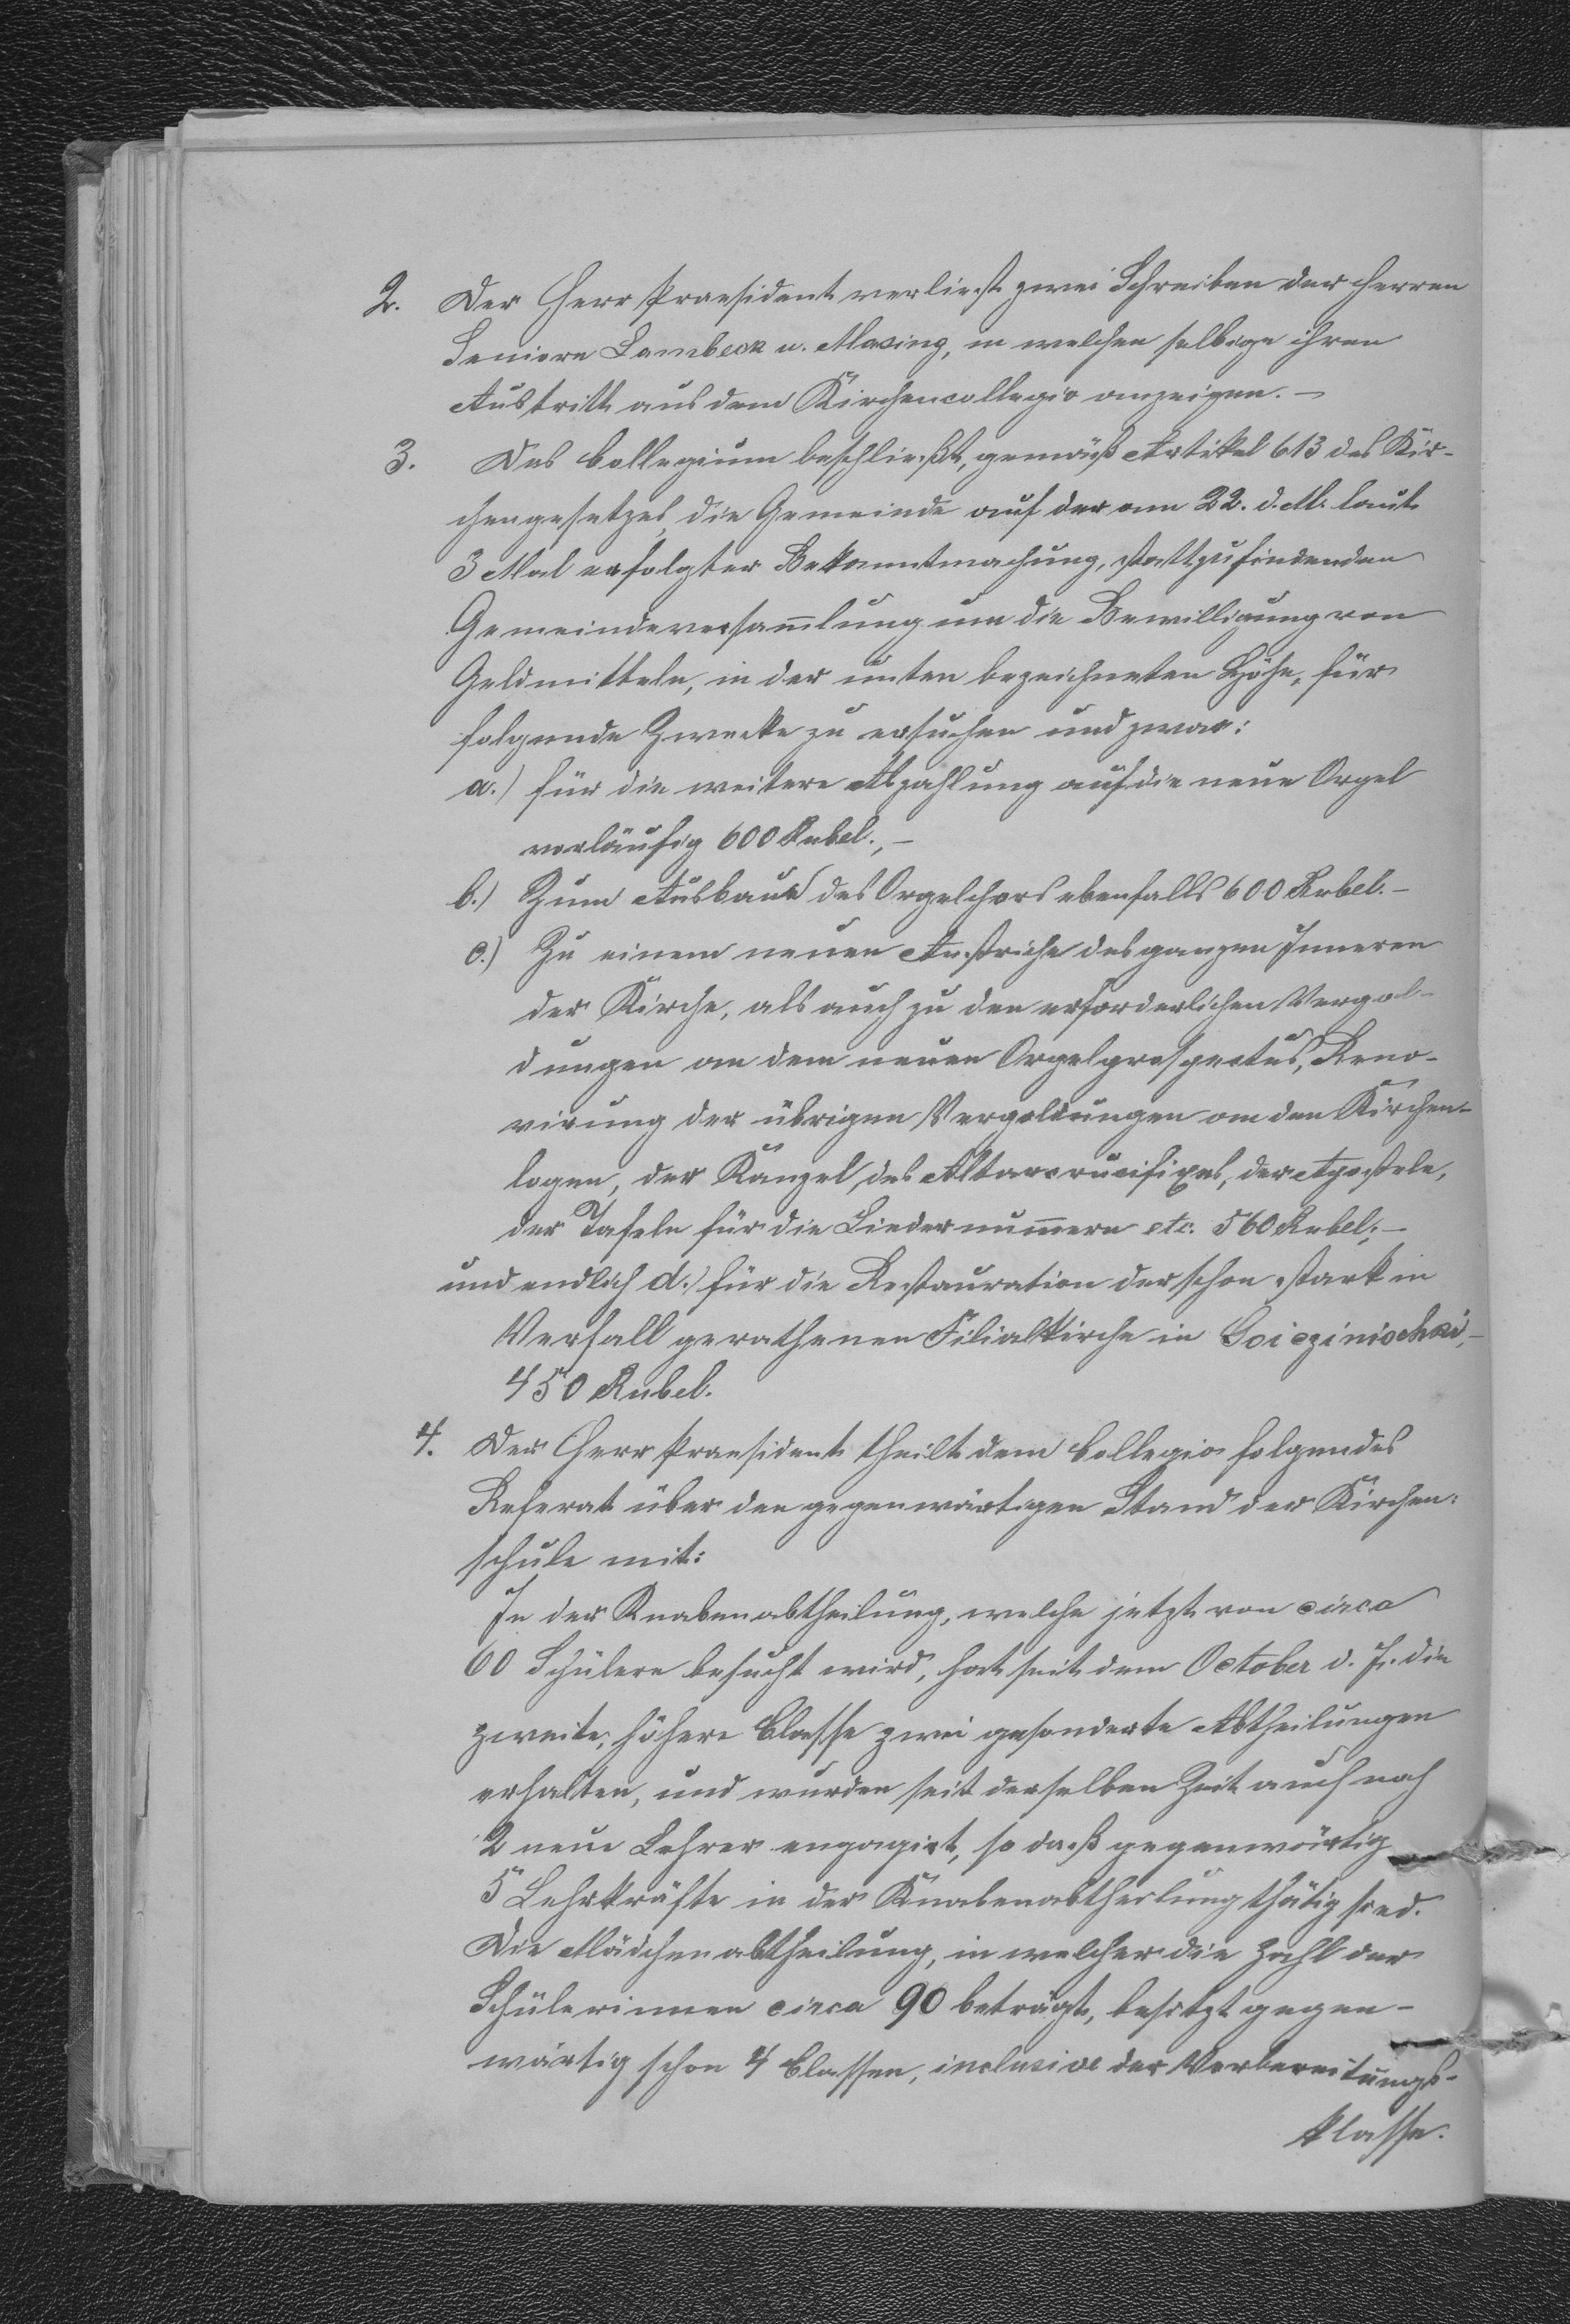 2. Der Herr Praesident verliest zwei Schreiben der Herren
Seniore Lambeck u. Masing, in welchen selbige ihren
Austritt aus dem Kirchencollegio anzeigen. –
3. Das Collegium beschließt, gemäß Artikel 613 des Kir-
chengesetzes, die Gemeinde auf der am 22. d. M. laut
3 Mal erfolgter Bekanntmachung, stattzufindenden
Gemeindeversam̅lung um die Bewilligung von
Geldmitteln, in der unten bezeichneten Höhe, für
folgende Zwecke zu ersuchen und zwar:
a.) für die weitere Abzahlung auf die neue Orgel
vorläufig 600 Rubel., –
b.) Zum Ausbaue des Orgelchors ebenfalls 600 Rubel. –
c.) Zu einem neuen Anstriche des ganzen Inneren
der Kirche, als auch zu den erforderlichen Vergol-
dungen an dem neuen Orgelprospectus, Reno-
virung der übrigen Vergoldungen an den Kirchen-
logen, der Kanzel, des Altarcrucifixes, der Apostele,
der Tafeln für die Liedernum̅ern etc. 560 Rubel; –
und endlich d.) für die Restauration der schon stark in
Verfall gerathenen Filialkirche in Goiczinischki, –
450 Rubel.
4. Der Herr Praesident theilt dem Collegio folgendes
Referat über den gegenwärtigen Stand der Kirchen:
schule mit:
In der Knabenabtheilung, welche jetzt von circa
60 Schülern besucht wird, hat seit dem October d. J. die
zweite, höhere Classe zwei gesonderte Abtheilungen
erhalten, und wurden seit derselben Zeit auch noch
2 neue Lehrer engagirt, so daß gegenwärtig
5 Lehrkräfte in der Knabenabtheilung thätig sind.
Die Mädchenabtheilung, in welcher die Zahl der
Schülerinnen circa 90 beträgt, besitzt gegen-
wärtig schon 4 Classen, inclusive der Vorbereitungs-
klasse.